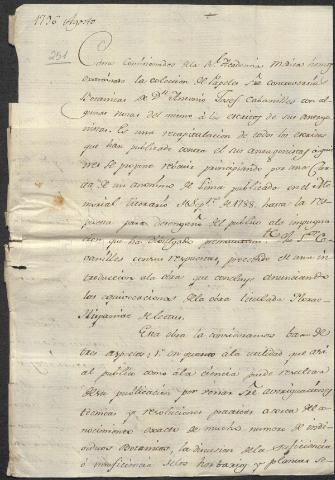 1796 Agosto
251
Como comisionados de la Rl. Academia Medica hemos
examinado la coleccion de papeles sre. controversias
Botanicas de Dn. Antonio Josef Cabanilles con al-
gunas notas del mismo à los escritos de sus antago-
nistas. Es una recapitulacion de todos los escritos
que han publicado contra el sus antagonistas, a qui-
nes se propone rebatir principiando por una Car-
ta de un anonimo de Lima publicado en el Me-
morial literario de Sepre. de 1788. hasta la res-
puesta para desengaño del publico als impugna-
dor que ha divulgado prematuramte. el Sor. Ca-
banilles contra respuestas, precedido de una in-
troduccion ala obra que concluye anunciando
las equivocaciones dela obra titulada Florae
Hispaniae delectus.
Esta obra la consideramos baxo de
tres aspectos; 1o. en quanto ala utilidad que asi
al publico como àla ciencia puede resultar
desu publicacion por versar sre. averiguaciones
tecnicas y resoluciones practicas acerca del co-
nocimiento exacto de mucho numero de indi-
viduos Botanicos, la decision dela suficiencia
ò insuficiencia delos herbarios y plantas se-